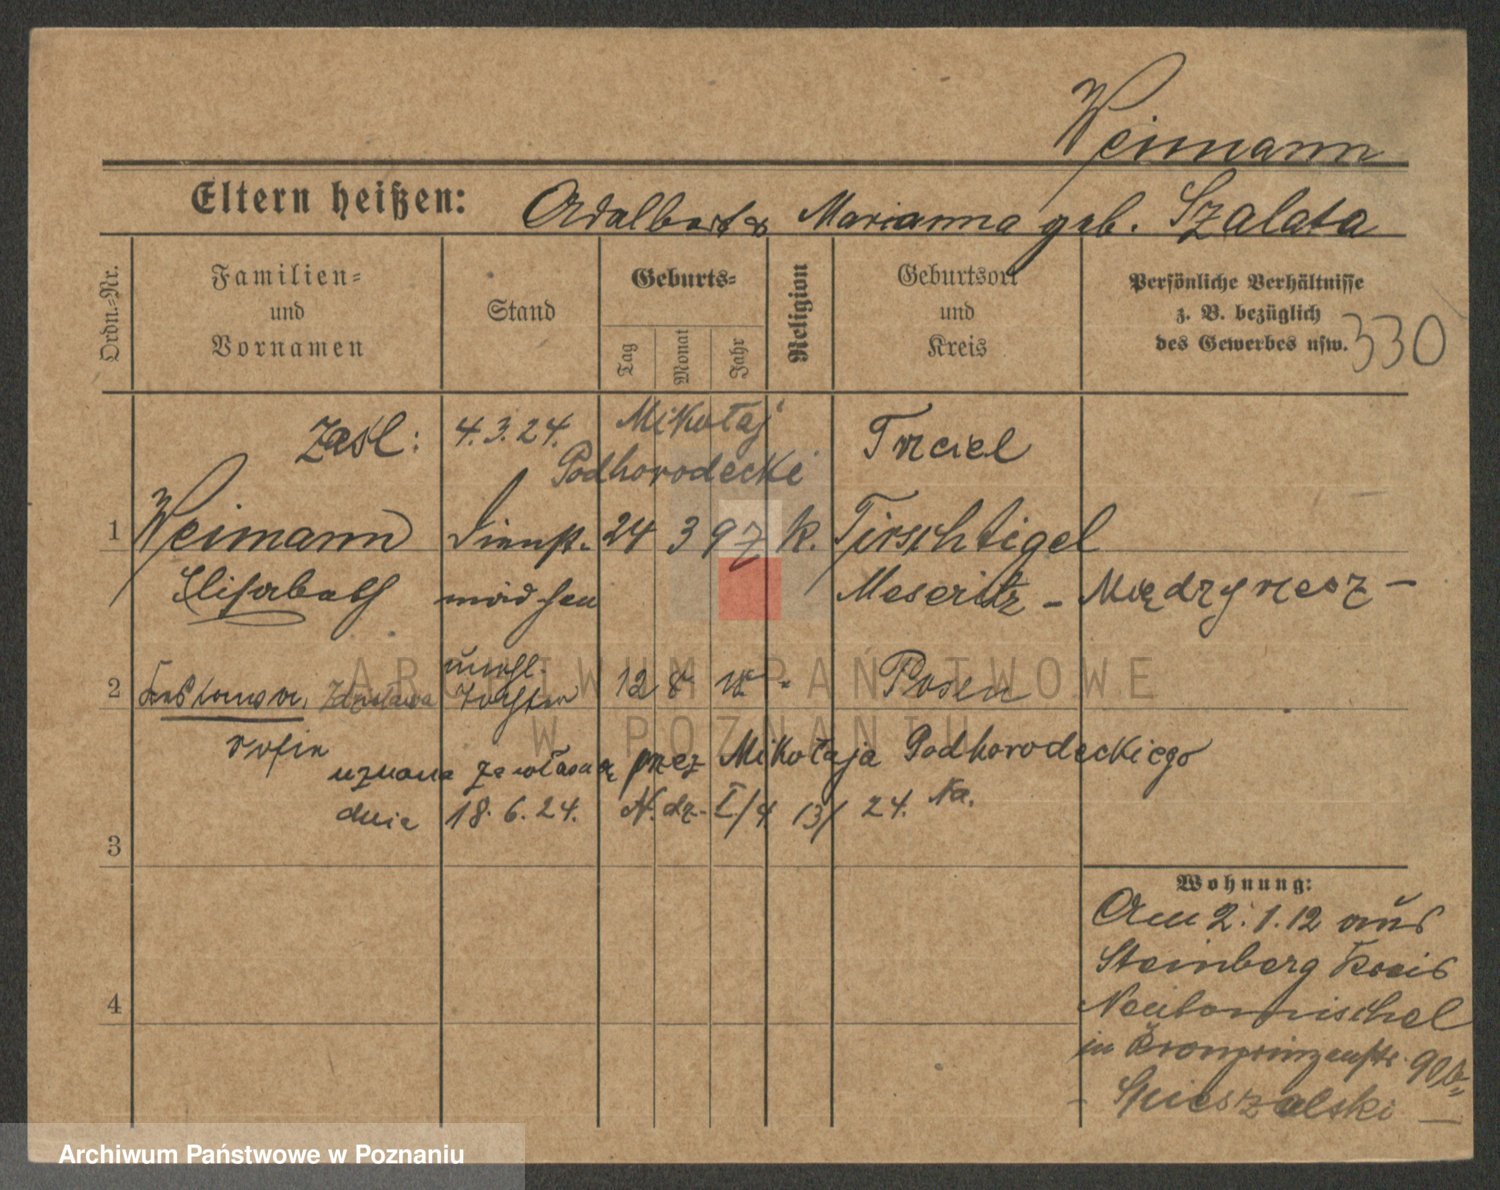 Weimann
Eltern heißen: Adalbert & Marianna geb. Szalata
Ordn.=Nr.
Familien=
und
Vornamen
Stand
Geburts=
Tag
Monat
Jahr
Religion
Geburtsort
und
Kreis
Persönliche Verhältnisse
z. B. bezüglich
des Gewerbes usw.
330
Zaśl: 4.3.24. Mikołaj Trzciel
Podhorodecki
1 Weimann Dienst- 24 3 97 k. Tirschtigel
Elisabeth mädchen Meseritz - Międzyrzecz -
unehl.
2 Zdzisława Tochter 12 8 Posen
uznana za własną przez Mikołaja Podhorodeckiego
dnia 18.6.24. N. dz. I/4 13/24. Na.
3
4
Wohnung:
Am 2.1.12 aus
Steinberg Kreis
Neutomischel
in Kronprinzenstr. 90
ARCHIWUM PAŃSTWOWE
W POZNANIU
Archiwum Państwowe w Poznaniu